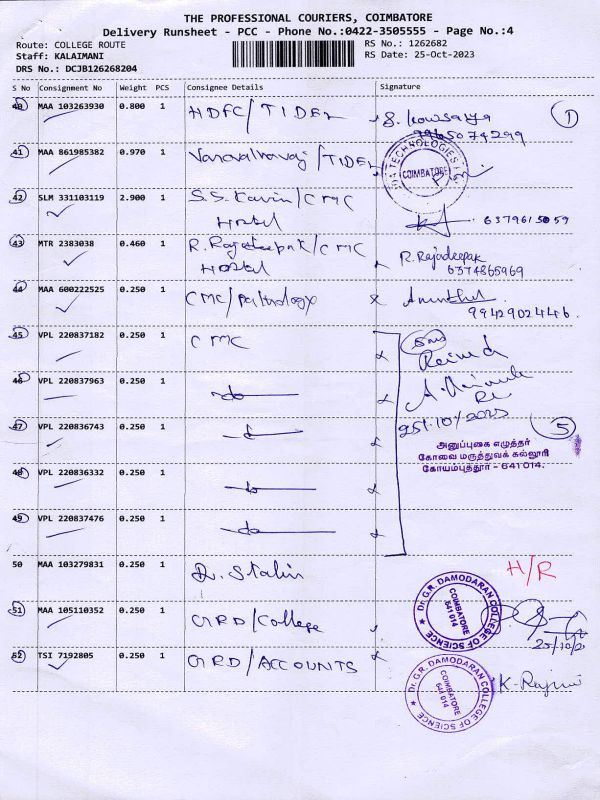 THE PROFESSIONAL COURIERS, COIMBATORE
Delivery Runsheet - PCC - Phone No.:0422-3505555 - Page No.:4
Route: COLLEGE ROUTE
RS No.: 1262682
Staff: KALAIMANI
RS Date: 25-Oct-2023
DRS No.: DCJB126268204
S No Consignment No Weight PCS Consignee Details Signature
40 MAA 103263930 0.800 1 HDFC/TIDEL S. Kowsalya 1
9965074299
41 MAA 861985382 0.970 1 /TIDEL
TECHNOLOGIES
COIMBATORE
42 SLM 331103119 2.900 1 S.S. Kavin/CMC
Hostel 6379615059
43 MTR 2383038 0.460 1 R. Rajadeepak/CMC R. Rajadeepak
Hostel 6374865969
44 MAA 600222525 0.250 1 CMC/pathology
9942902446.
45 VPL 220837182 0.250 1 CMC
46 VPL 220837963 0.250 1 do
47 VPL 220836743 0.250 1 do 5
25.10/2023
அனுப்புகை எழுத்தர்
கோவை மருத்துவக் கல்லூரி
கோயம்புத்தூர் - 641 014.
48 VPL 220836332 0.250 1 do
49 VPL 220837476 0.250 1 do
50 MAA 103279831 0.250 1 Dr. Stalin H/R
51 MAA 105110352 0.250 1 GRD/College
Dr. G.R. DAMODARAN COLLEGE OF SCIENCE
COIMBATORE
641 014
25/10/2
52 TSI 7192805 0.250 1 GRD/ACCOUNTS
Dr. G.R. DAMODARAN COLLEGE OF SCIENCE
COIMBATORE
641 014
K. Rajini